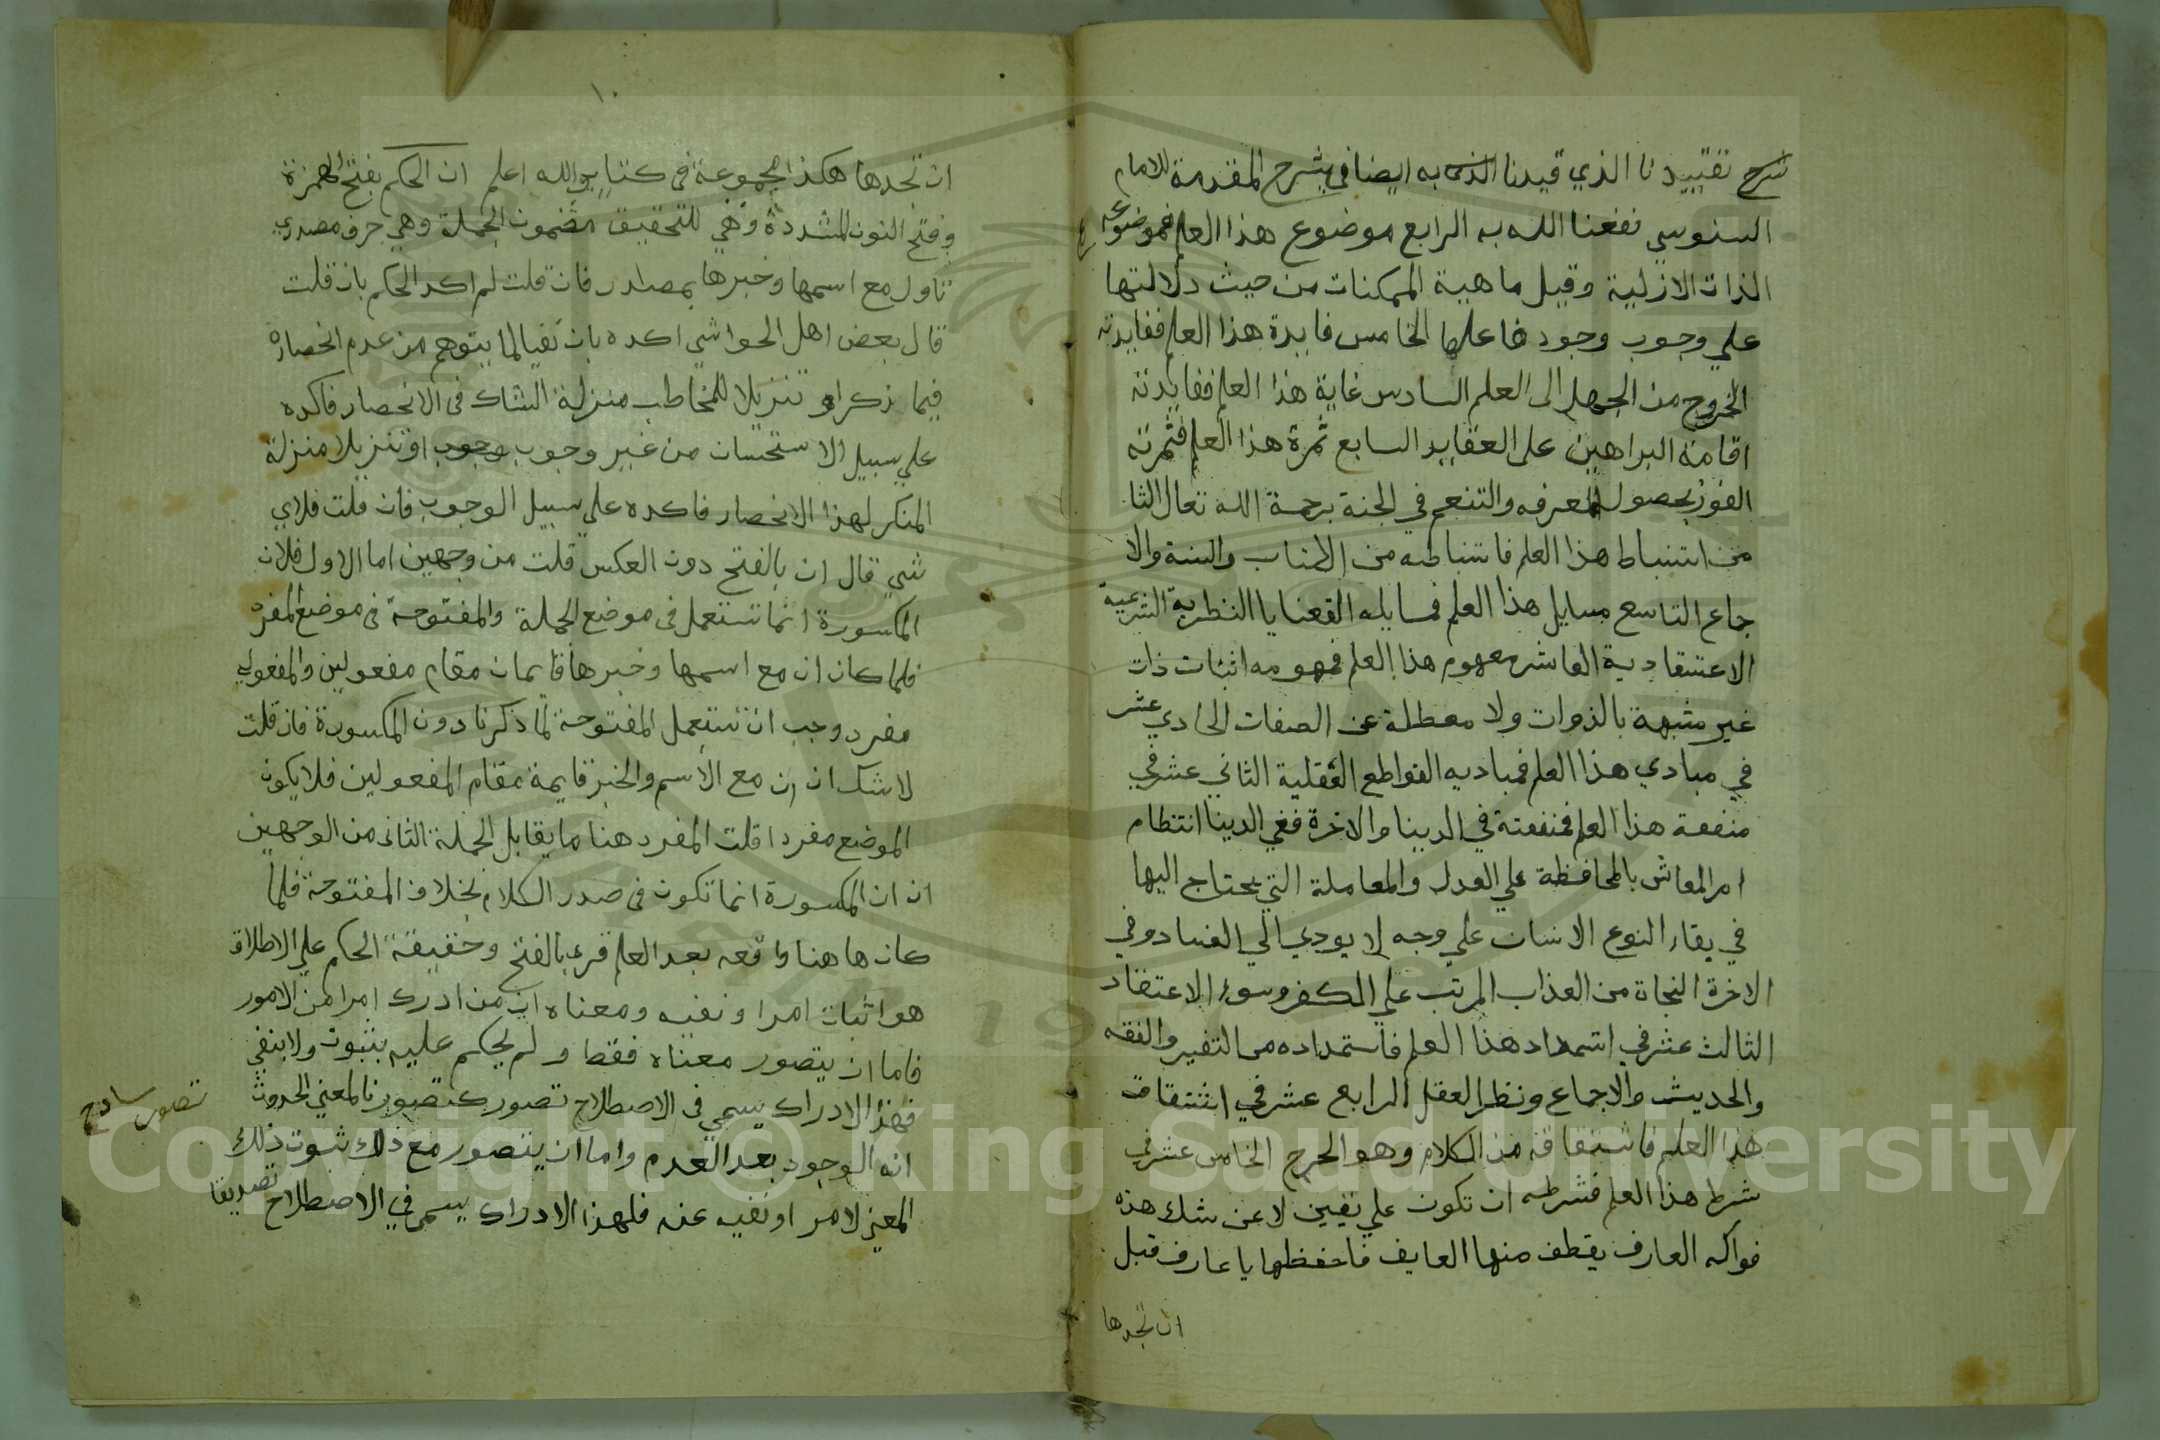 شرح تقييدنا الذي قيدنا الذى به ايضا في شرح المقدمة للامام
السنوسي نفعنا الله به الرابع موضوع هذا العلم فموضوعه
الذات الازلية وقيل ماهية الممكنات من حيث دلالتها
علي وجوب وجود فاعلها الخامس فايدة هذا العلم ففايدته
الخروج من الجهل الى العلم السادس غاية هذا العلم ففايدته
اقامة البراهين على العقايد السابع ثمرة هذا العلم فثمرته
الفوز بحصول المعرفه والتنعم في الجنة برحمة الله تعال الثا
من استنباط هذا العلم فاستنباطه من الكتاب والسنة والا
جماع التاسع مسايل هذا العلم فمسايله القضايا النظرية الشرعية
الاعتقادية العاشر مفهوم هذا العلم فمهومه اثبات ذات
غير مشبهة بالذوات ولا معطلة عن الصفات الحادي عشر
في مبادي هذا العلم فمباديه القواطع العقلية الثاني عشر في
منفعة هذا العلم فمنفعته في الدينا والاخرة ففي الدينا انتظام
امر المعاش بالمحافظة علي العدل والمعاملة التي يحتاج اليها
في بقاء النوع الانسان علي وجه لا يودي الي الفساد وفي
الاخرة النجاة من العذاب المرتب علي الكفر وسوء الاعتقاد
الثالث عشر في استمداد هذا العلم فاستمداده من التفير والفقه
والحديث والاجماع ونظر العقل الرابع عشر في اشتقاق
هذا العلم فاشتقاقه من الكلام وهو الجرح الخامس عشر في
شرط هذا العلم فشرطه ان تكون علي يقين لا عن شك هذه
فواكه العارف يقطف منها العايف فاحفظها يا عارف قبل
ان تجدها
١٠
ان تجدها هكذا مجموعة فى كتاب والله اعلم ان الحكم بفتح الهمزة
وفتح النون المشددة وهي للتحقيق مضمون الجملة وهي حرف مصدري
تاول مع اسمها وخبرها بمصدر فان قلت لم اكد الحكم بان قلت
قال بعض اهل الحواشي اكده بان نفيا لما يتوهم من عدم انحصاره
فيما ذكر او تنزيلا للمخاطب منزلة الشاك فى الانحصار فاكده
علي سبيل الاستحسان من غير وجوب وجوب او تنزيلا منزلة
المنكر لهذا الانحصار فاكده علي سبيل الوجوب فان قلت فلاي
شي قال ان بالفتح دون العكس قلت من وجهين اما الاول فلان
المكسورة انما تستعمل فى موضع الجملة والمفتوحة فى موضع المفرد
فلما كان ان مع اسمها وخبرها قايمان مقام مفعولين والمفعول
مفرد وجب ان تستعمل المفتوحة لما ذكرنا دون المكسورة فان قلت
لا شك ان ان مع الاسم والخبر قايمة مقام المفعولين فلا يكون
الموضع مفردا قلت المفرد هنا ما يقابل الجملة الثانى من الوجهين
ان ان المكسورة انما تكون فى صدر الكلام بخلاف المفتوحة فلما
كان هاهنا واقعه بعد العلم قرء بالفتح وحقيقة الحكم علي الاطلاق
هو اثبات امر او نفيه ومعناه ان من ادرك امرا من الامور
فاما ان يتصور معناه فقط ولم يحكم عليه بثبوت ولا بنفي
فهذا الادراك يسمي فى الاصطلاح تصور كتصورنا المعني الحدوث
تصور ساذج
انه الوجود بعد العدم واما ان يتصور مع ذلك ثبوت ذلك
المعني لامر او نفيه عنه فلهذا الادراك يسمى في الاصطلاح تصديقا
Copyright © King Saud University